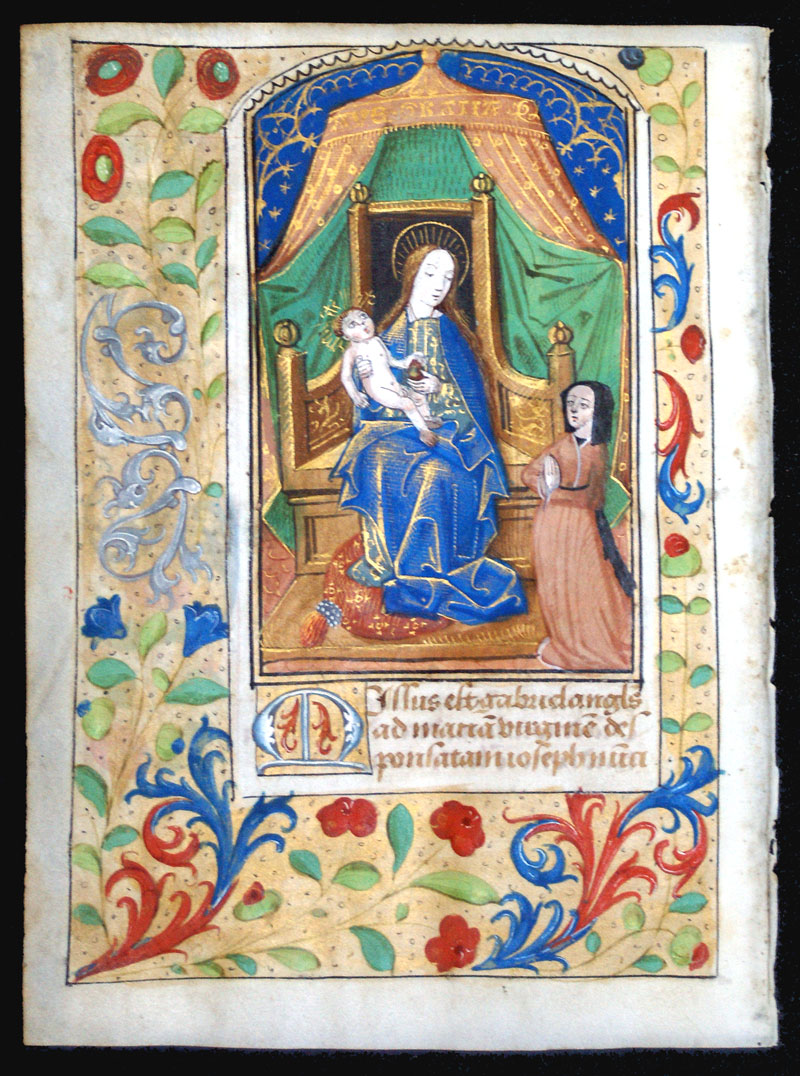 Missus est gabriel angls
ad mariā virginē des
ponsatam ioseph nūci